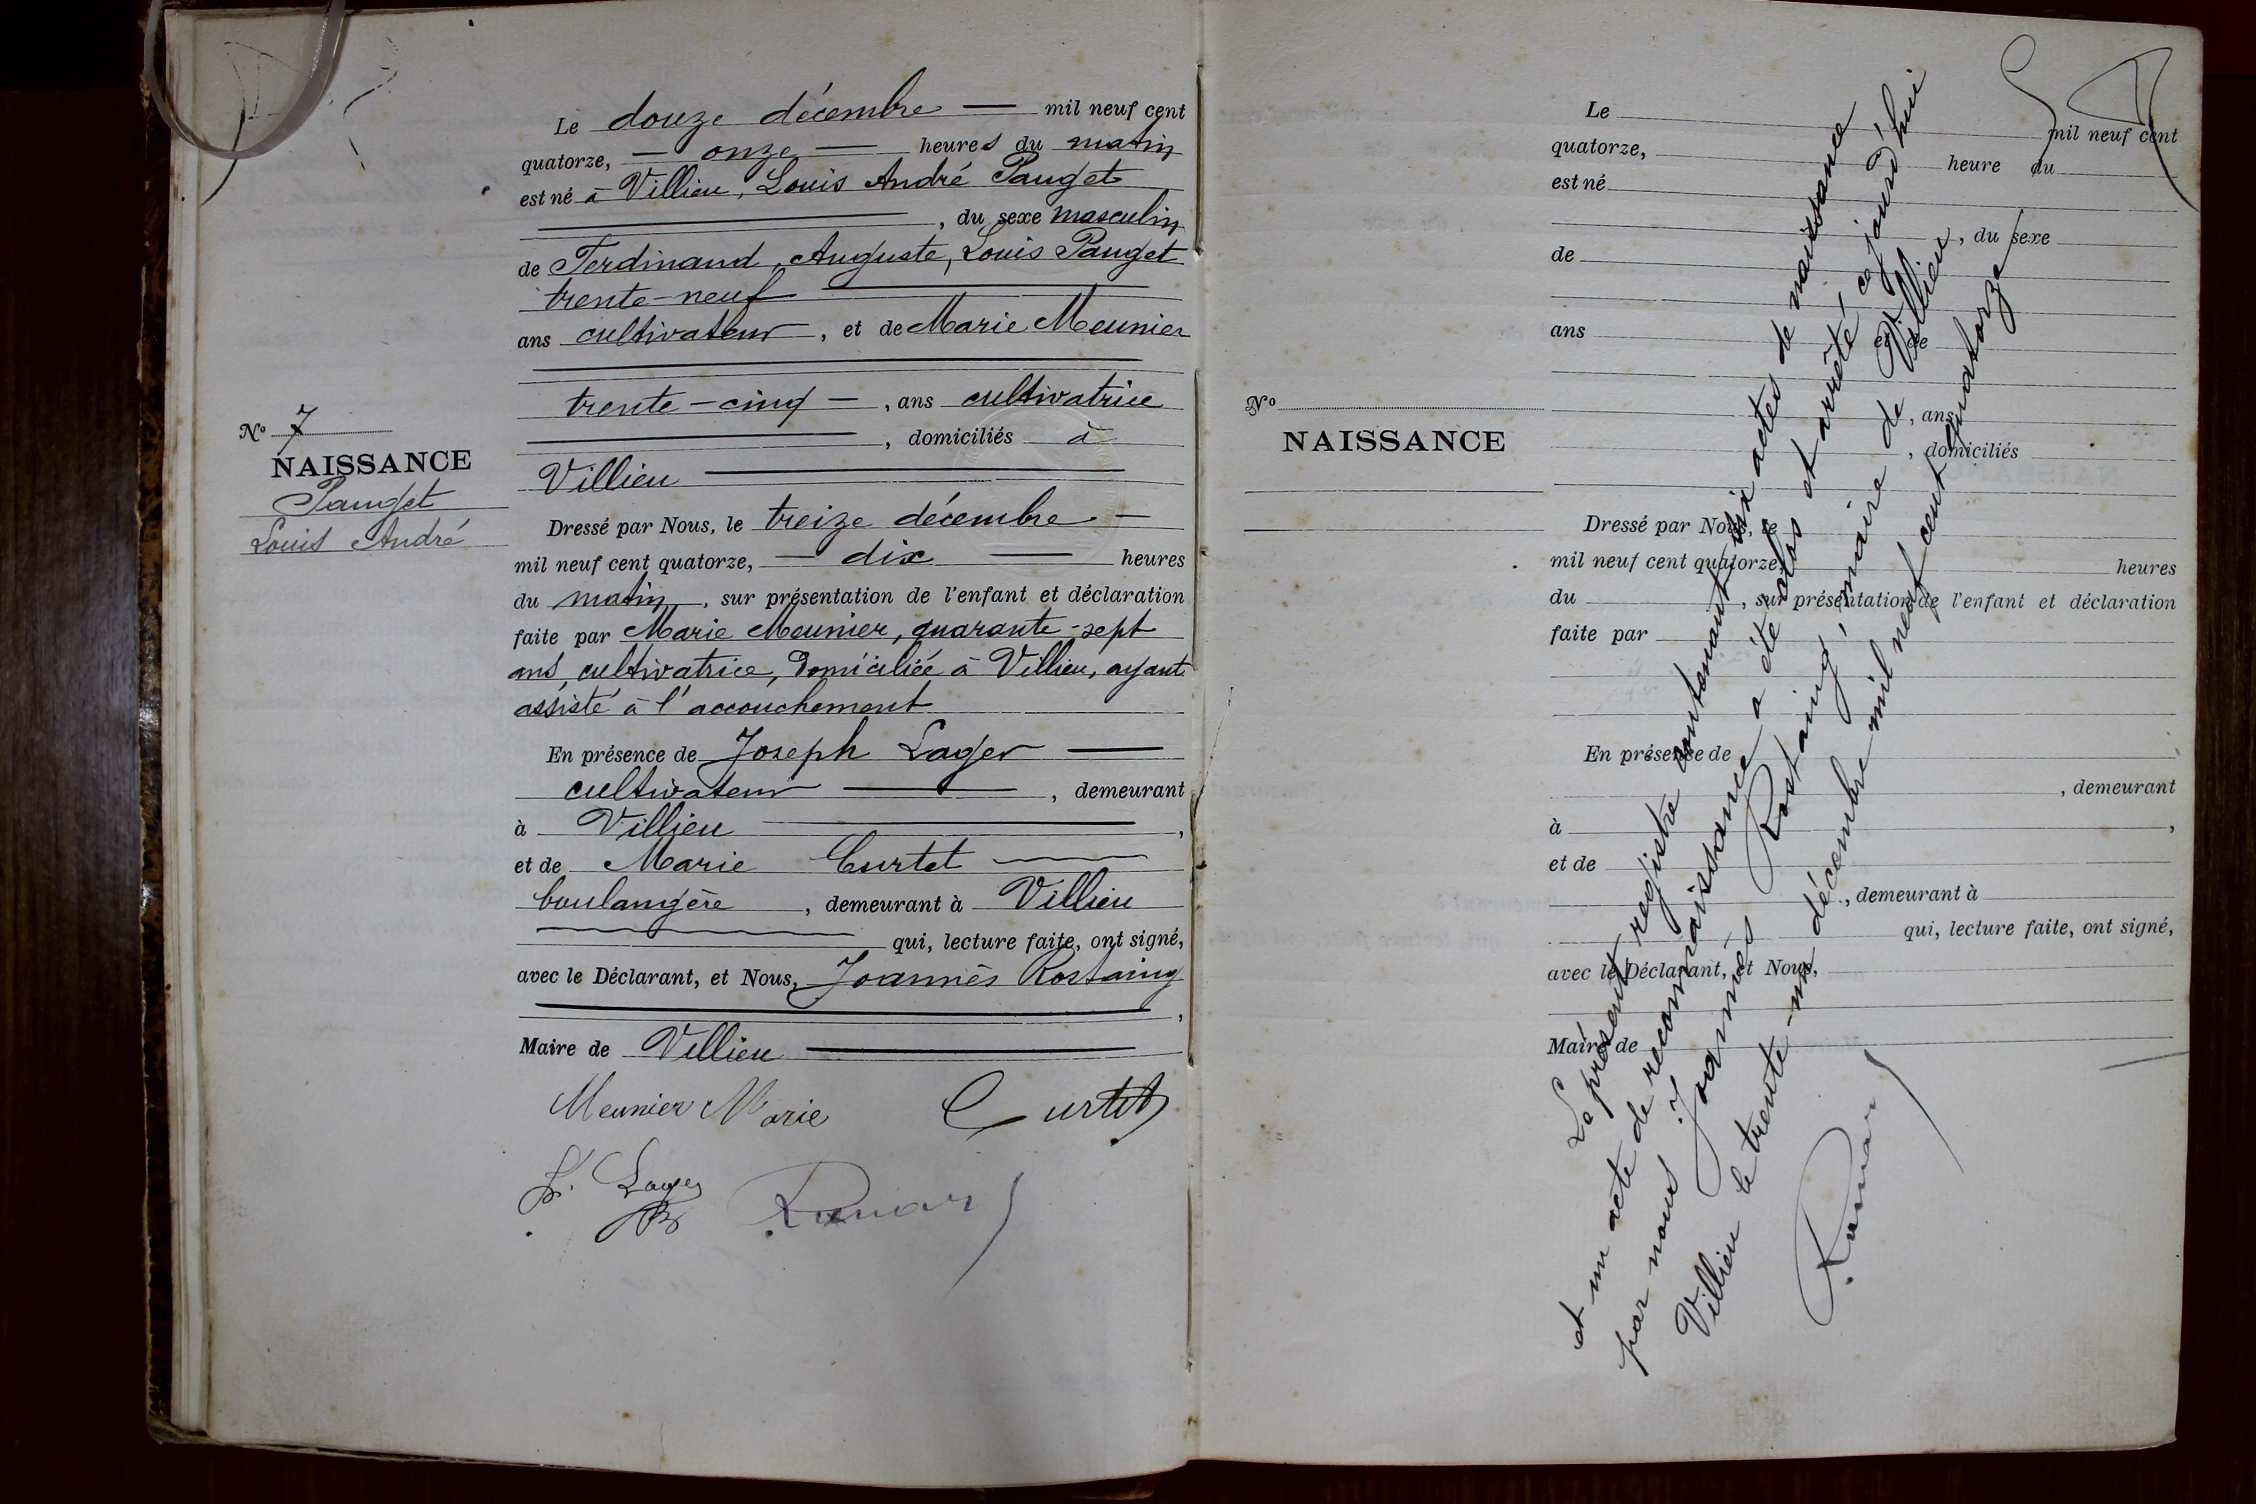 Le douze décembre — mil neuf cent
quatorze, — onze — heures du matin
est né à Villieu, Louis André Pauget
, du sexe masculin
de Ferdinand, Auguste, Louis Pauget
trente-neuf
ans cultivateur, et de Marie Meunier
trente-cinq —, ans cultivatrice
, domiciliés à
Villieu
Dressé par Nous, le treize décembre —
mil neuf cent quatorze, — dix — heures
du matin, sur présentation de l'enfant et déclaration
faite par Marie Meunier, quarante-sept
ans, cultivatrice, domiciliée à Villieu, ayant
assisté à l'accouchement
En présence de Joseph Lager —
cultivateur —, demeurant
à Villieu —,
et de Marie Curtet
boulangère, demeurant à Villieu
qui, lecture faite, ont signé,
avec le Déclarant, et Nous, Joannès Rostaing
,
Maire de Villieu —
Meunier Marie Curtet
Lager
Nº 7
NAISSANCE
Pauget
Louis André
Le mil neuf cent
quatorze, heure du
est né
, du sexe
de
ans et de
, ans
, domiciliés
Nº
NAISSANCE
Dressé par Nous, le
mil neuf cent quatorze, heures
du , sur présentation de l'enfant et déclaration
faite par
En présence de
, demeurant
à ,
et de
, demeurant à
qui, lecture faite, ont signé,
avec le Déclarant, et Nous,
Maire de
Le présent registre contenant six actes de naissance
et un acte de reconnaissance a été clos et arrêté ce jourd'hui
par nous Joannès Rostaing, maire de Villieu
Villieu le trente-un décembre mil neuf cent quatorze